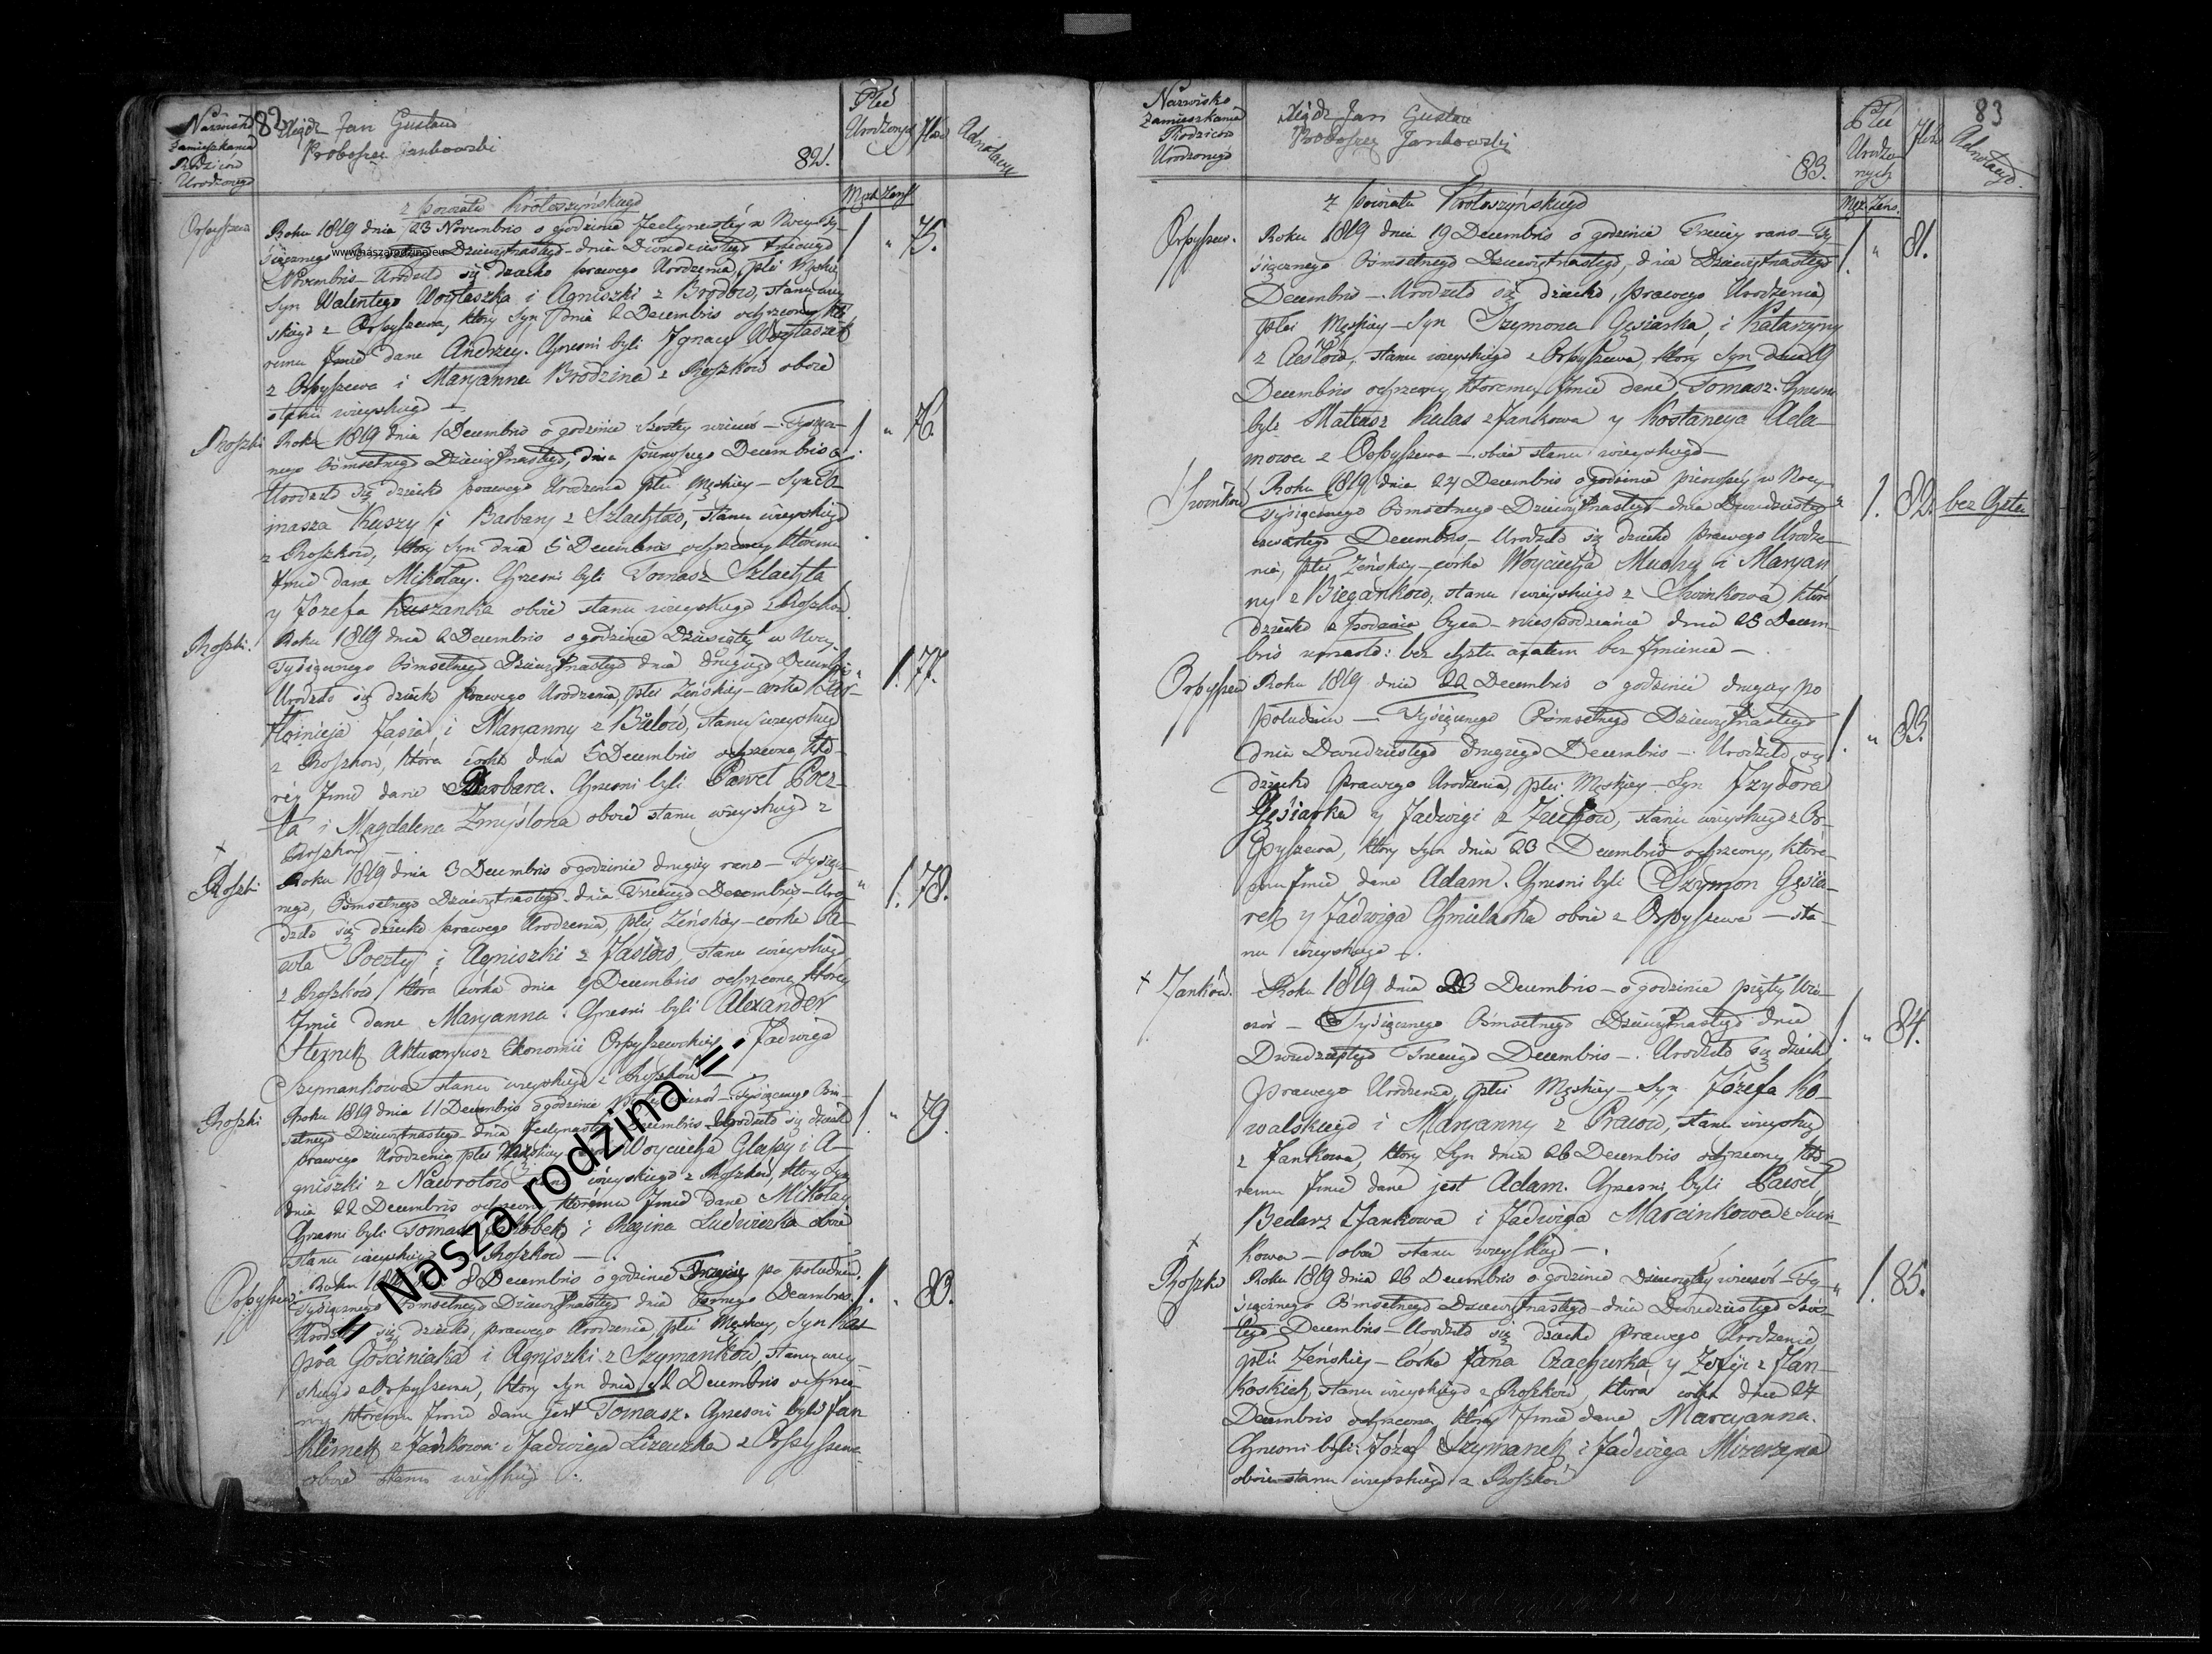 Nazwisko
Zamieszkania
Rodziców
Urodzonego
82
Xiądz Jan Gustaw
Proboszcz Jankowski
82.
Płeć
Urodzonych
Adnotacye
Męzk Zeńsk
z Powiatu Krotoszyńskiego
Orpyszewo
Roku 1819 dnia 23 Novembris o godzinie Jedynastéy w Nocy Ty-
siącznego Dziewiętnastego dnia Dwudziestego trzeciego
www.naszarodzina.eu
Novembris Urodziło się dziecko prawego Urodzenia, płci Męzkiey
Syn Walentego Woytaszka i Agniszki z Brodów, stanu wiey-
skiego z Orpyszewa, który Syn dnia 2 Decembris ochrzcony któ-
remu Jmie dane Andrzey. Chrzesni byli Jgnacy Woytaszek
z Orpyszewa i Maryanna Brodzina z Roszków oboie
stanu wieyskiego —
1 " 75.
Roszki
Roku 1819 dnia 1 Decembris o godzinie Szóstey wieczór — Tysiącz-
nego Ośmsetnego Dziewiętnastego, dnia pierwszego Decembris
Urodziło się dziecko prawego Urodzenia płci Męskiey — Syn To-
masza Kuszy i Barbary z Szlachtów, stanu wieyskiego
z Roszków, który Syn dnia 5 Decembris ochrzcony któremu
Jmie dane Mikołay. Chrzesni byli Tomasz Szlachta
y Józefa Kuszanka oboie stanu wieyskiego z Roszków
1 " 76.
Roszki.
Roku 1819 dnia 2 Decembris o godzinie Dziesiątéy w Nocy.
Tysiącznego Ośmsetnego Dziewiętnastego dnia drugiego Decembris
Urodziło się dziecko prawego Urodzenia, płci Zeńskiey — corka
Jasia i Maryanny z Bielów, stanu wieyskiego
z Roszków, która córka dnia 5 Decembris ochrzcona, któ-
réy Jmie dane Barbara. Chrzesni byli Paweł Pocz-
ta i Magdalena Zmyślona oboie stanu wieyskiego z
Roszków
" 1. 77.
Roszki
Roku 1819 dnia 3 Decembris o godzinie drugiey rano — Tysiącz-
nego, Ośmsetnego Dziewiętnastego dnia Trzeciego Decembris, Uro-
dziło się dziecko prawego Urodzenia, płci Zeńskiey — corka Pa-
wła Poczty i Agniszki z Jasiów, stanu wieyskiego
z Roszków, która córka dnia 9 Decembris ochrzcona, któréy
Jmie dane Maryanna. Chrzesni byli Alexander
Aktuaryusz Ekonomii Orpyszewskiéy i Jadwiga
Szymankowa stanu wieyskiego z Roszków —
" 1. 78.
Roszki
Roku 1819 dnia 11 Decembris o godzinie wieczór — Tysiącznego Ośm-
setnego Dziewiętnastego dnia Decembris Urodziło się dziecko
prawego Urodzenia płci Męskiey Woyciecha Glapy i A-
gniszki z Nawrotów wieyskiego z Roszków, który Syn
dnia 12 Decembris ochrzcony któremu Jmie dane Mikołay
Chrzesni byli Tomasz i Regina Ludwiczka oboie
stanu wieyskiego Roszków —.
1 " 79.
Orpyszew.
Roku 18 8 Decembris o godzinie Trzeciey po południu.
Tysiącznego Ośmsetnego Dziewiętnastego dnia Osmego Decembris.
Urodziło się dziecko, prawego Urodzenia, płci Męskiey, Syn Kas-
pra Gościniaka i Agniszki z Szymanków, stanu wiey-
skiego z Orpyszewa, który Syn dnia 12 Decembris ochrzco-
ny któremu Jmie dane jest Tomasz. Chrzesni byli Jan
Klimek z Jankowa i Jadwiga Lizaczka z Orpyszewa
oboie stanu wieyskiego.
1. " 80.
.= Nasza rodzina =.
Nazwisko
Zamieszkania
Rodziców
Urodzonego
Xiądz Jan Gustaw
Proboszcz Jankowski
83.
Płeć
Urodzo-
nych
83
Adnotacye.
Męz. Zeńs.
z Powiatu Krotoszyńskiego
Orpyszew.
Roku 1819 dnia 19 Decembris o godzinie Trzeciey rano Ty-
siącznego Ośmsetnego Dziewiętnastego, dnia Dziewiętnastego
Decembris —. Urodziło się dziecko, prawego Urodzenia,
płci Męskiey — Syn Szymona Gęsiarka, i Katarzyny
z stanu wieyskiego z Orpyszewa, który Syn dnia 19
Decembris ochrzcony, któremu Jmie dane Tomasz. Chrzesni
byli Mateusz Kulas z Jankowa y Kostancya Ada-
mowa z Orpyszewa — oboie stanu wieyskiego —
1. " 81.
Swinków
Roku 1819 dnia 24 Decembris o godzinie pierwszéy w Nocy
Tysiącznego Ośmsetnego Dziewiętnastego dnia Dwudziestego
czwartego Decembris — Urodziło się dziecko prawego Urodze-
nia, płci Zeńskiey — córka Woyciecha Muchy i Maryan-
ny z Biegańków, stanu wieyskiego z Swinkowa, które
dziecko z podania Oyca — niespodzianie dnia 25 Decem-
bris umarło: bez chrztu azatem bez Jmienia —
" 1. 82. bez Chrztu
Orpyszew
Roku 1819 dnia 22 Decembris o godzinie drugiey po
południu — Tysiącznego Ośmsetnego Dziewiętnastego
dnia Dwudziestego drugiego Decembris —. Urodziło się
dziecko prawego Urodzenia, płci Męskiey — Syn Jzydora
Gęsiarka y Jadwigi z stanu wieyskiego z Or-
pyszewa, który Syn dnia 23 Decembris ochrzcony, które-
mu Jmie dane Adam. Chrzesni byli Szymon Gęsia-
rek y Jadwiga Chmielarka oboie z Orpyszewa — sta-
nu wieyskiego.
1. " 83.
Janków.
Roku 1819 dnia 23 Decembris — o godzinie piątey Wie-
czór — Tysiącznego Ośmsetnego Dziewiętnastego dnia
Dwudziestego Trzeciego Decembris —. Urodziło się dziecko
prawego Urodzenia, płci Męskiey — Syn Józefa Ko-
walskiego i Maryanny z stanu wieyskiego
z Jankowa, który Syn dnia 26 Decembris ochrzcony, któ-
remu Jmie dane jest Adam. Chrzesni byli Paweł
Bednarz z Jankowa i Jadwiga Marcinkowa z Swin-
kowa — oboie stanu wieyskiego —.
1. " 84.
Roszki
Roku 1819 dnia 26 Decembris o godzinie Dziewiątey wieczór — Ty-
siącznego Ośmsetnego Dziewiętnastego — dnia Dwudziestego Szós-
tego Decembris — Urodziło się dziecko prawego Urodzenia
płci Zeńskiey — Córka Jana y Zofije z Jan-
koskich, stanu wieyskiego z Roszków, która córka dnia 27
Decembris ochrzcona, któréy Jmie dane Maryanna.
Chrzesni byli Józef Szymanek i Jadwiga Mizerzyna
oboie stanu wieyskiego z Roszków
" 1. 85.